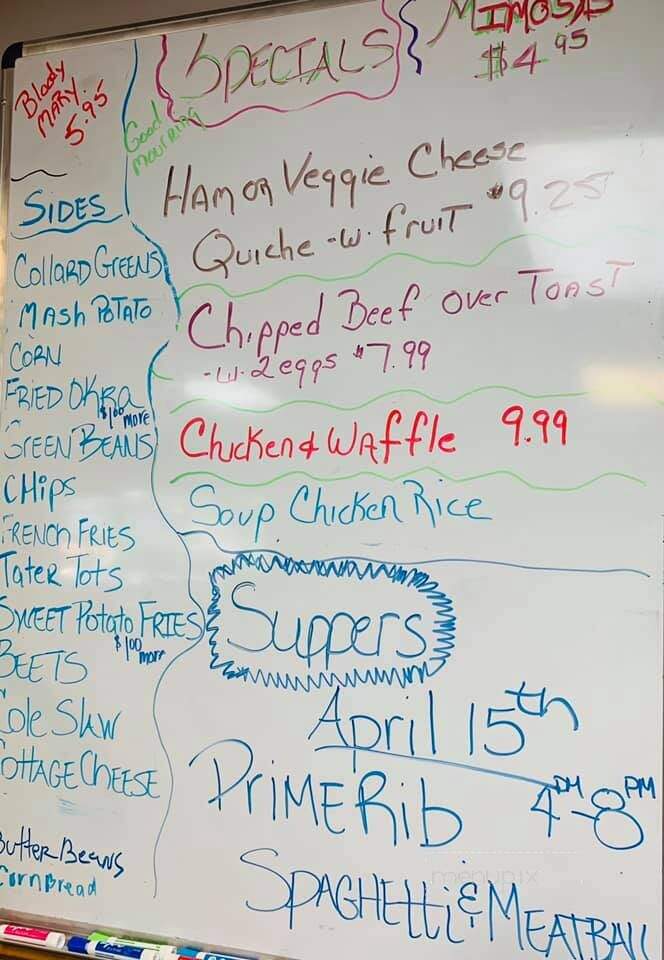 Bloody
MARY
5.95
SPECIALS
MIMOSAS
$4.95
Good
Mourning
SIDES
Collard Greens
Mash Potato
Corn
Fried Okra
$1.00
more
Green Beans
Chips
French Fries
Tater Tots
Sweet Potato Fries
$1.00
more
Beets
Cole Slaw
Cottage Cheese
Butter Beans
Corn Bread
Ham or Veggie Cheese
Quiche -w- fruit $9.25
Chipped Beef over Toast
-w- 2 eggs $7.99
Chicken & Waffle 9.99
Soup Chicken Rice
Suppers
April 15th
Prime Rib 4PM-8PM
Spaghetti & Meatball
menupix